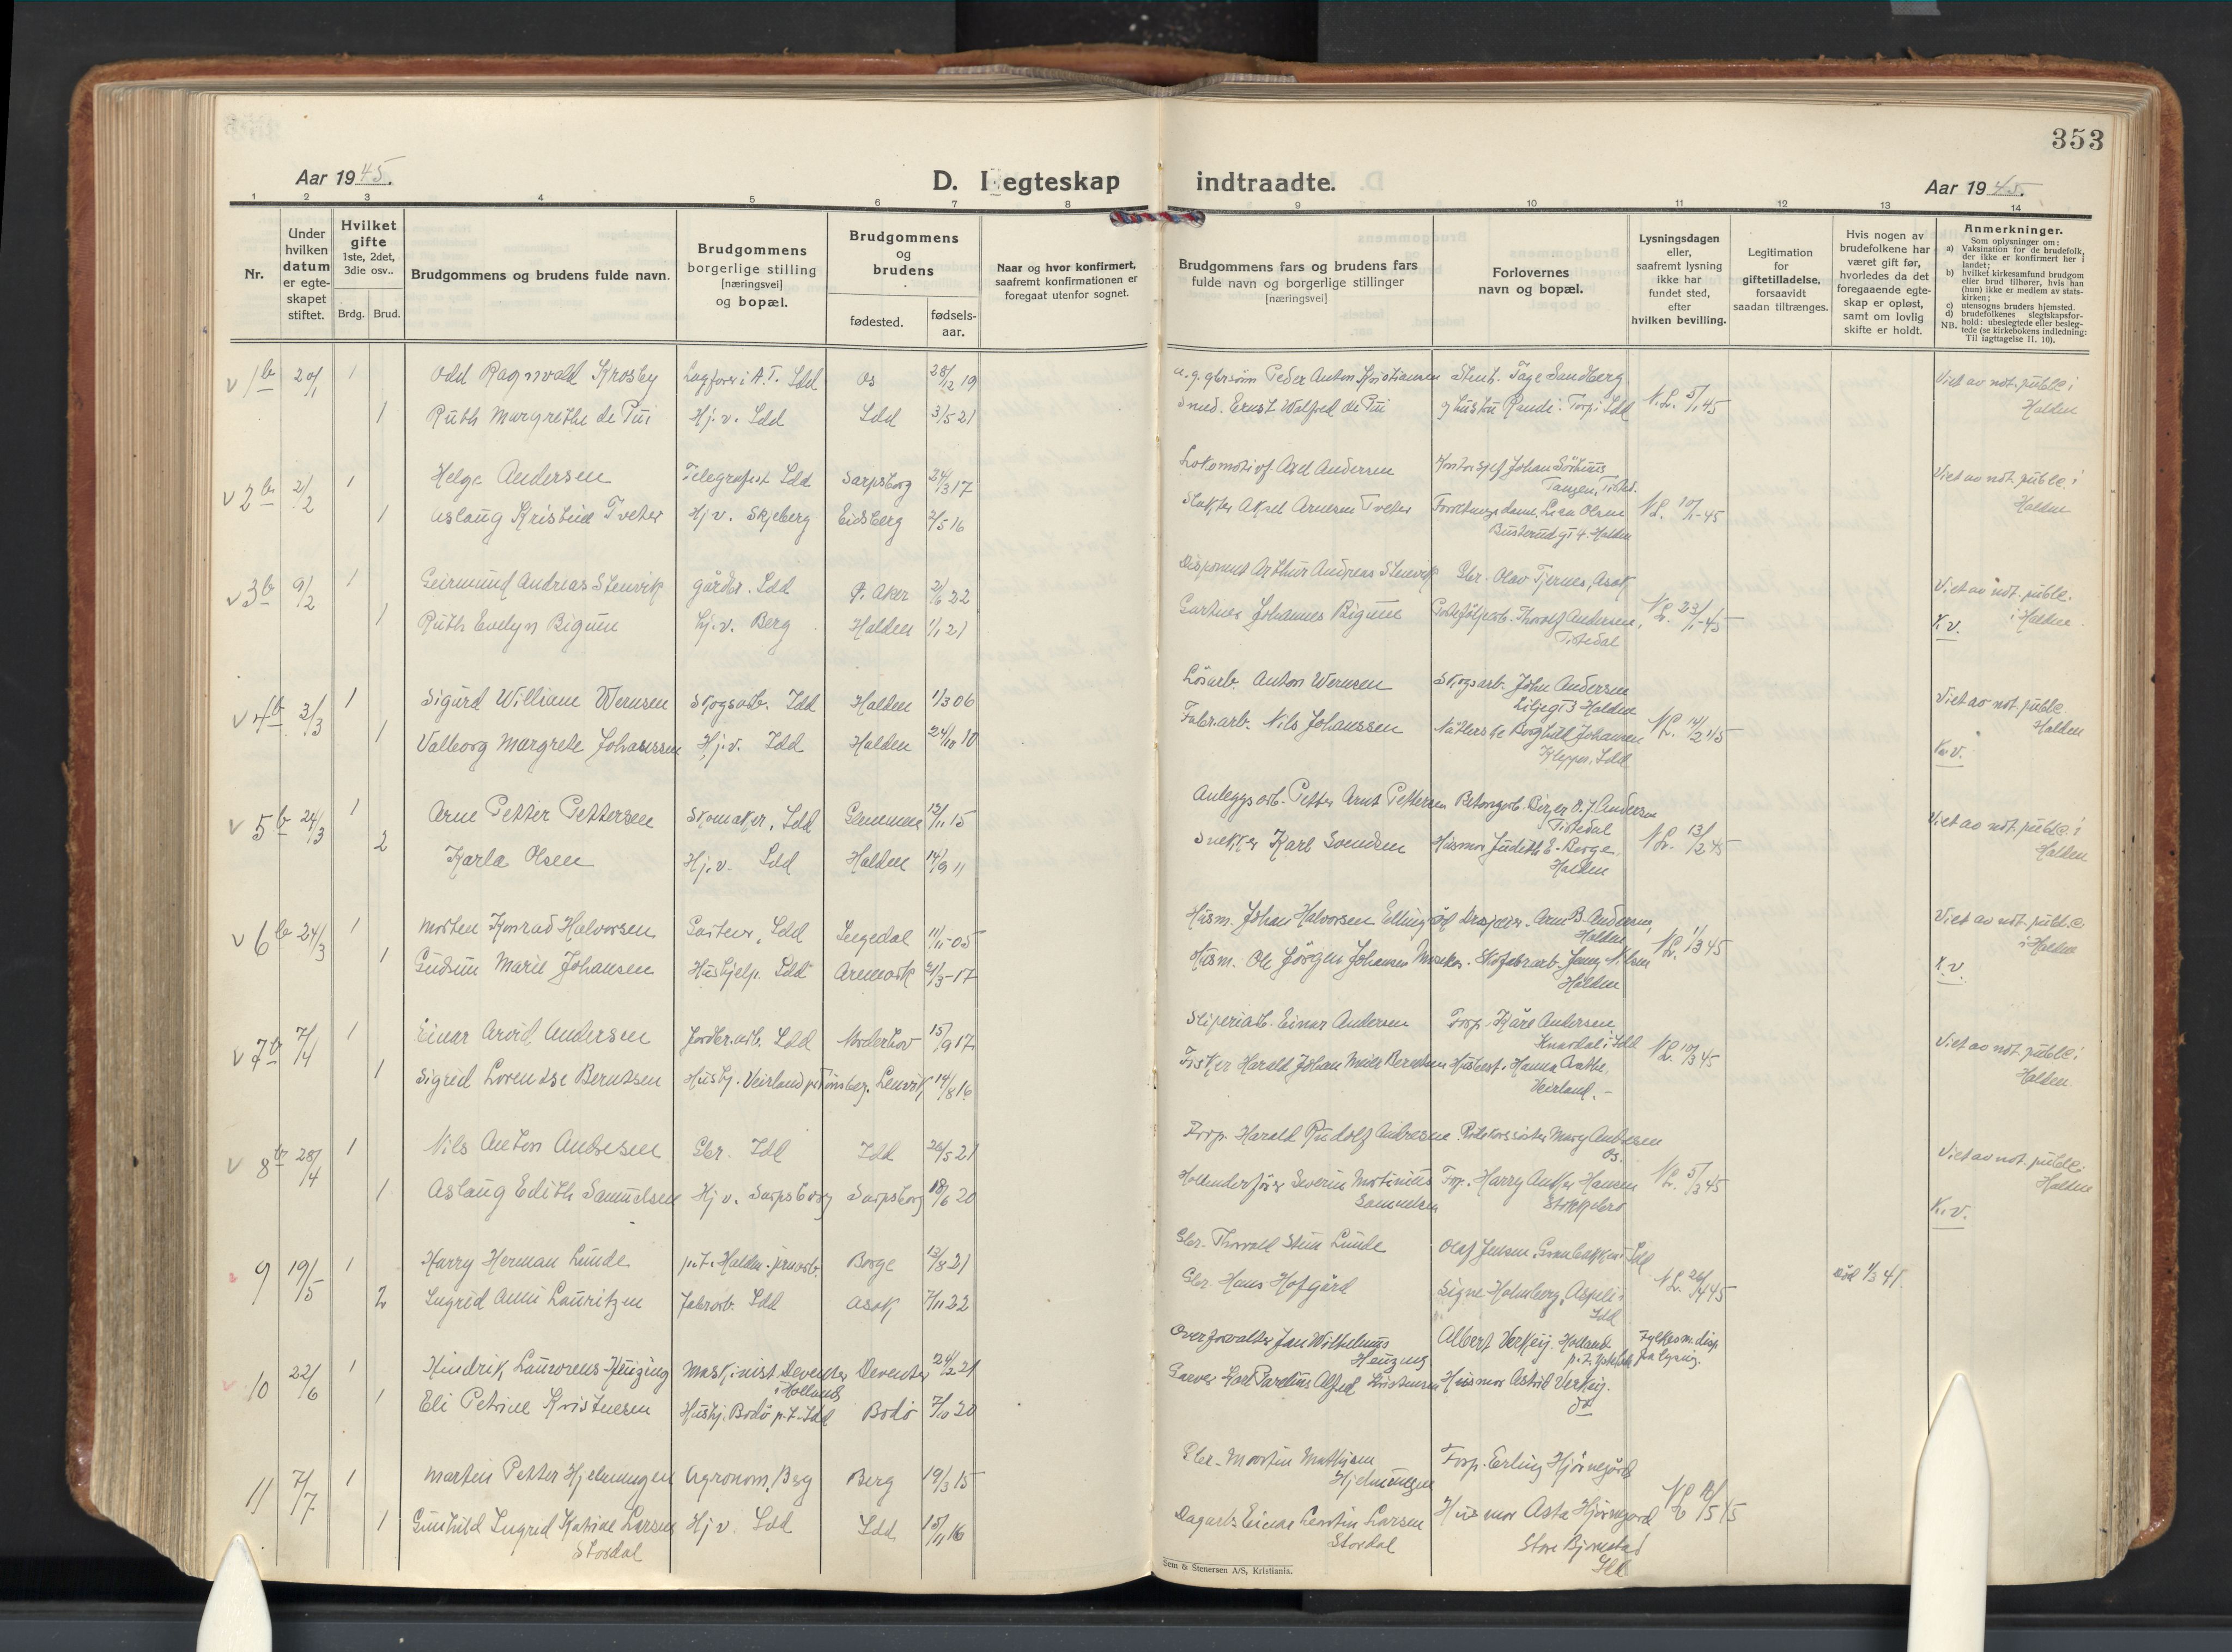 353
Aar 1945.
D. I egteskap indtraadte.
Aar 1945.
1 2 3 4 5 6 7 8 9 10 11 12 13 14
Nr.
Under hvilken datum er egte-skapet stiftet.
Hvilket gifte 1ste, 2det, 3die osv..
Brdg. Brud.
Brudgommens og brudens fulde navn.
Brudgommens borgerlige stilling [næringsvei] og bopæl.
Brudgommens og brudens
fødested.
fødsels-aar.
Naar og hvor konfirmert, saafremt konfirmationen er foregaat utenfor sognet.
Brudgommens fars og brudens fars fulde navn og borgerlige stillinger [næringsvei]
Forlovernes navn og bopæl.
Lysningsdagen eller, saafremt lysning ikke har fundet sted, efter hvilken bevilling.
Legitimation for giftetilladelse, forsaavidt saadan tiltrænges.
Hvis nogen av brudefolkene har været gift før, hvorledes da det foregaaende egte-skap er opløst, samt om lovlig skifte er holdt.
Anmerkninger.
Som oplysninger om:
a) Vaksination for de brudefolk, der ikke er konfirmert her i landet;
b) hvilket kirkesamfund brudgom eller brud tilhører, hvis han (hun) ikke er medlem av stats-kirken;
c) utensogns bruders hjemsted.
d) brudefolkenes slegtskapsfor-hold: ubeslegtede eller besleg-tede (se kirkebokens indledning: Til iagttagelse II. 10).
NB.
v 1b 20/1 1 Odd Ragnvald Krosby Lagfører i A.T. Idd Os 28/12 19 Peder Anton Kristiansen Tage Sandberg Viet av not. publ. i
1 Ruth Margrethe de Pui Hj. v. Idd Idd 3/5 21 Smed. Ernst Walfred de Pui g hustru Randi. Torp i Idd N.L. 5/1 45 Halden
v 2b 2/2 1 Helge Andersen Telegrafist Idd Sarpsborg 24/3 17 Lokomotivf. Axel Andersen Kontorsjef Johan Viet av not. publ. i
Tangen, Tisted.
1 Aslaug Kristine Tveter Hj v. Skjeberg Eidsberg 2/5 16 Slakter Aksel Arnesen Tveter Olsen N.L. 10/1-45 Halden
Busterudgt 4. Halden
v 3b 9/2 1 Geirmund Andreas Stenvik gårdbr. Idd Aker 2/6 22 Disponent Arthur Andreas Stenvik Gbr. Olav Tjernes, Asak Viet av not. publ.
1 Ruth Evelyn Bigum Hj. v. Berg Halden 1/1 21 Gartner Johannes Bigum Thorolf Andersen, N.L. 23/1-45 i Halden
Tistedal K.v.
v 4b 3/3 1 Sigurd William Wernsen Skogsarb. Idd Halden 1/3 06 Løsarb. Anton Wernsen Skogsarb. John Andersen Viet av not. publ.
Liljegt 3 Halden
1 Valborg Margrete Johanssen Hj. v. Idd Halden 24/10 10 Fabr.arb. Nils Johanssen Borghild Johansen N.L. 14/2 45 Halden
Klepper, Idd K.v.
v 5b 24/3 1 Arne Petter Pettersen Skomaker, Idd Glemmen 12/11 15 Anleggsarb. Petter Arnt Pettersen Betongarb. Birger Andersen Viet av not. publ. i
Tistedal
2 Karla Olsen Hj. v. Idd Halden 14/9 11 Snekker Karl Husmor Judith E. Berge N.L. 13/2 45 Halden
Halden
v 6b 24/3 1 Morten Konrad Halvorsen Gartner, Idd Ingedal 11/11-05 Husm. Johan Halvorsen Arne B. Andersen, Viet av not. publ.
Halden
1 Gudrun Marie Johansen Hushjelp. Idd Aremark 21/3-17 Husm. Ole Jörgen Johansen Skofabr.arb. Jenny Nilsen N.L. 1/3 45 i Halden
Halden K.v.
v 7b 7/4 1 Einar Arvid Andersen Jordbr.arb. Idd Norderhov 15/9 17 Sliperiarb. Einar Andersen Forp. Kåre Andersen Viet av not. publ. i
Knardal i Idd
1 Sigrid Lorendse Berntsen Hushj. Veirland pr Tönsberg. Lenvik 14/8 16 Fisker Harald Johan Berntsen Husbest. Hanna N.L. 10/3 45 Halden.
Veirland. -
v 8b 28/4 1 Nils Anton Andresen Gbr. Idd Idd 26/5 21 Forp. Harald Rudolf Andresen Mary Andresen Viet av not. publ.
Os.
1 Aslaug Edith Samuelsen Hj v. Sarpsborg Sarpsborg 18/6 20 Severin Martinius Forp. Harry Anker Hansen N.L. 5/3 45 Halden
Samuelsen K.v.
9 19/5 1 Harry Herman Lunde p.t. Halden Borge 13/8 21 Gbr. Thorvald Stein Lunde Olaf Jensen, Granbakken Idd
2 Ingrid Anni Lauritzen Fabrarb. Idd Asak 7/11 22 Gbr. Hans Hofgård Signe Holmberg, Aspeli i N.L. 26/4 45 død 1/3 41
Idd
10 22/6 1 Hindrik Laurorens Heuzing Maskinist Deventer Deventer 24/2 21 Overforvalter Jan Wilhelmus Albert Verkeij. Holland Fylkesm. disp.
i Holland Heuzing fra lysning.
1 Eli Petrine Kristensen Hushj. Bodø p.t. Idd Bodø 7/10 20 Alfred Kristensen Husmor Astrid Verkeij.
do
11 7/7 1 Martin Petter Hjelmungen Agronom, Berg Berg 19/3 15 Gbr. Martin Mathisen Forp. Erling Hjörnegård
Hjelmungen
1 Gunhild Ingrid Katrine Larsen Hj v. Idd Idd 15/11 16 Dagarb. Einar Larsen Husmor Asta Hjörnegård N.L. 12/5 45
Stordal Stordal Store Bjørnstad
Idd
Sem & Stenersen A/S, Kristiania.